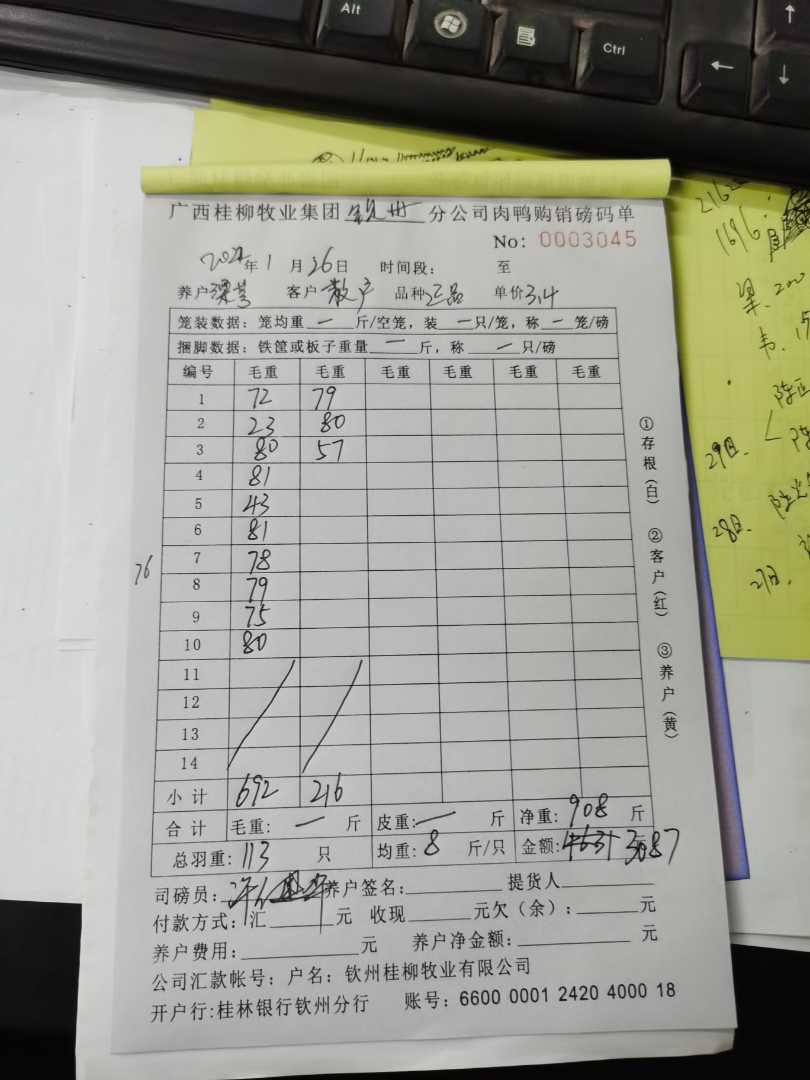 Alt
Ctrl
广西桂柳牧业集团 钦州 分公司肉鸭购销磅码单
No: 0003045
年1月26日 时间段: 至
养户 客户 散户 品种 正品 单价 3.4
笼装数据: 笼均重 — 斤/空笼, 装 — 只/笼, 称 — 笼/磅
捆脚数据: 铁筐或板子重量 — 斤, 称 — 只/磅
编号 毛重 毛重 毛重 毛重 毛重 毛重
1 72 79
2 23 80
3 80 57
4 81
5 43
6 81
7 78
8 79
9 75
10 80
11
12
13
14
小计 692 216
合计 毛重: — 斤 皮重: — 斤 净重: 908 斤
总羽重: 113 只 均重: 8 斤/只 金额: 3087
司磅员: 养户签名: 提货人
付款方式: 汇 元 收现 元欠(余): 元
养户费用: 元 养户净金额: 元
公司汇款帐号: 户名: 钦州桂柳牧业有限公司
开户行:桂林银行钦州分行 账号: 6600 0001 2420 4000 18
①存根(白) ②客户(红) ③养户(黄)
76
1696
29日.
28日.
27日.